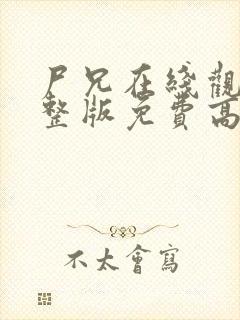 尸兄在线觀
整版免費高
不太會寫